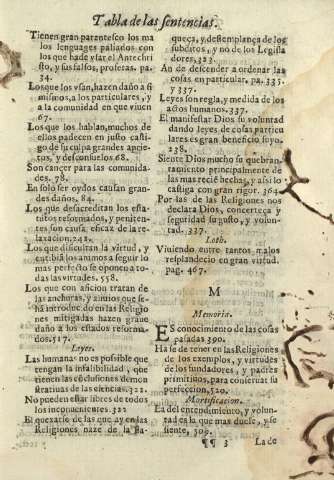 Tabla de las sentencias.
Tienen gran parentesco los ma
los lenguages paliados con
los que hade vsar el Antechri
sto, y sus falsos, profetas. pa.
34.
Los que los vsan, hazen daño a si
mismos, a los particulares, y
a la comunidad en que viuen
67.
Los que los hablan, muchos de
ellos padecen en justo casti-
go de su culpa grandes aprie-
tos, y desconsuelos 68.
Son cancer para las comunida-
des. 78.
En solo ser oydos causan gran-
des daños. 84.
Los que desacreditan los esta-
tutos reformados, y peniten-
tes son causa eficaz de la re-
laxacion, 243.
Los que dificultan la virtud, y
entibiã los animos a seguir lo
mas perfecto se oponen a to-
das las virtudes. 558.
Los que con aficion tratan de
las anchuras, y auisos que se
hã introducido en las Religio
nes mitigadas hazen graue
daño a los estados reforma-
dos. 517.
Leyes.
Las humanas no es possible que
tengan la infalibilidad, que
tienen las cõclusiones demon
stratiuas de las ciencias. 322.
No pueden estar libres de todos
los inconuenientes. 322
El quexarse de las que ay en las
Religiones naze de la fla-
queça, y destemplança de los
subditos, y no de los Legisla
dores, 323.
An de descender a ordenar las
cosas en particular. pa. 335.
y 337.
Leyes son regla, y medida de los
actos humanos. 337.
El manifestar Dios su voluntad
dando leyes de cosas particu
lares es gran beneficio suyo.
238.
Siente Dios mucho su quebran-
tamiento principalmente de
las mas reciẽ hechas, y assi lo
castiga con gran rigor. 364.
Por las de las Religiones nos
declara Dios, con certeça, y
seguridad su gusto, y volun-
tad. 337.
Loth.
Viuiendo entre tantos malos
resplandecio en gran virtud.
pag. 467.
M
Memoria.
ES conocimiento de las cosas
passadas 390.
Ha se de tener en las Religiones
de los exemplos, y virtudes
de los fundadores, y padres
primitiuos, para conseruar su
perfeccion, 520.
Mortificacion.
La del entendimiento, y volun-
tad es la que mas duele, y se
siente, 309.
¶¶ 3
La de